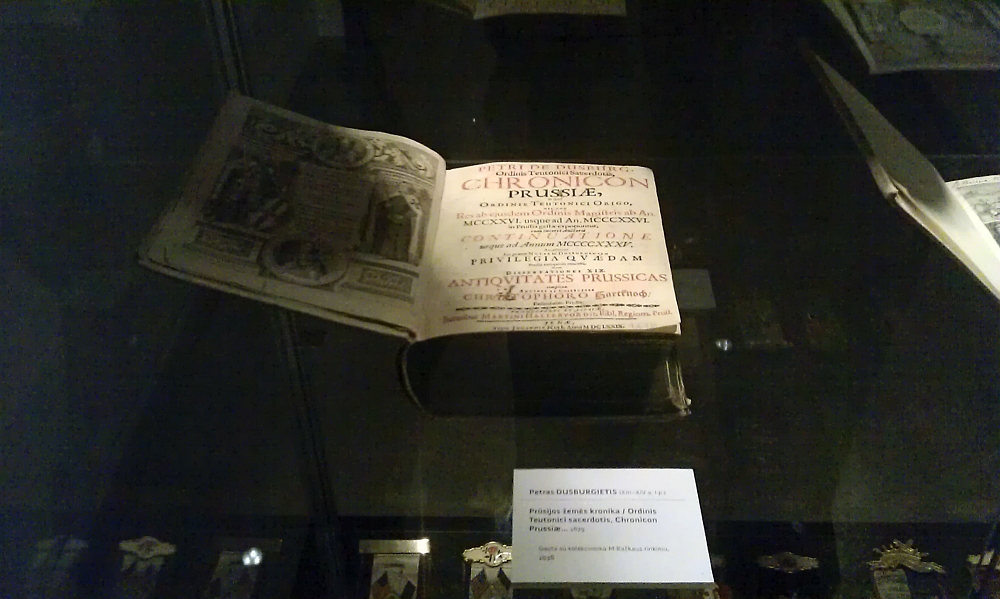 PETRI DE DUSBURG,
Ordinis Teutonici Sacerdotis,
CHRONICON
PRUSSIÆ,
ORDINIS TEUTONICI ORIGO,
Res ab ejusdem Ordinis Magistris ab An.
MCCXXVI. usque ad An. MCCCXXVI.
in Prussia gestæ exponuntur,
cum incerti auctoris
CONTINUATIONE
usque ad Annum MCCCCXXXV,
PRIVILEGIA QVÆDAM
DISSERTATIONES XIX
ANTIQVITATES PRUSSICAS
CHRISTOPHORO Hartknoch/
MARTINI HALLERVORDII, Bibl. Regiom. Prust.
Petras DUSBURGIETIS
Prūsijos žemės kronika / Ordinis
Teutonici sacerdotis, Chronicon
Prussiæ... 1679